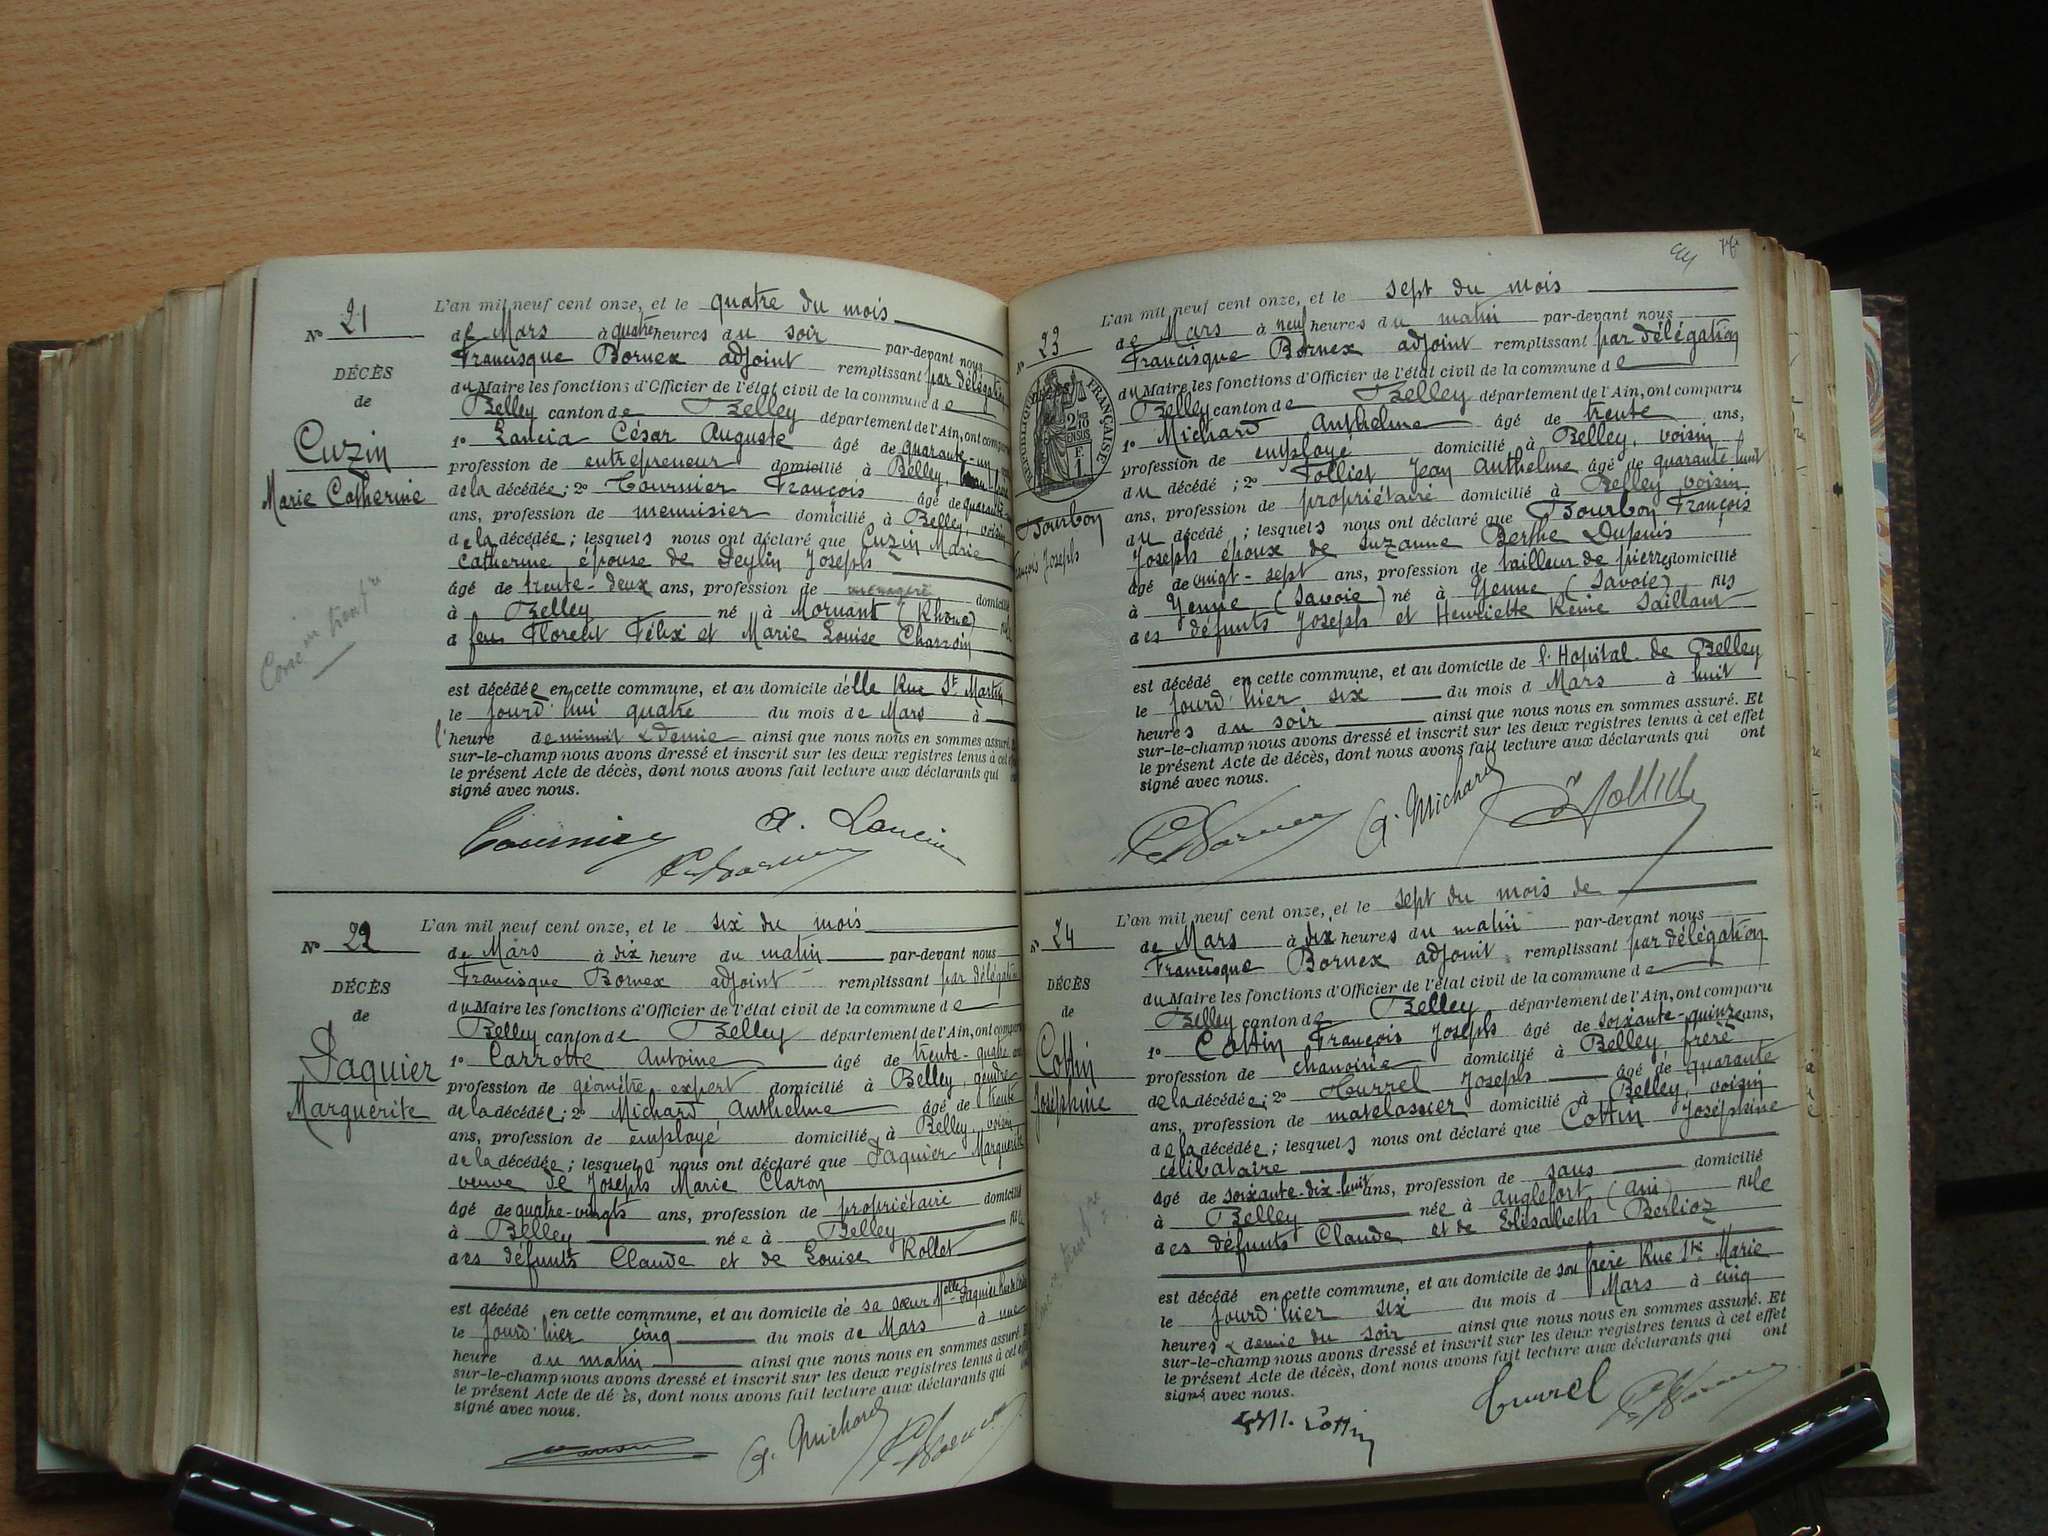 N° 21
DÉCÈS
de
Cuzin
Marie Catherine
L'an mil neuf cent onze, et le quatre du mois
de Mars à quatre heures du soir par-devant nous
Francisque Bornex adjoint remplissant par délégation
du Maire les fonctions d'Officier de l'état civil de la commune de
Belley canton de Belley département de l'Ain, ont comparu
1° Lancia César Auguste âgé de quarante-un ans
profession de entrepreneur domicilié à Belley,
de la décédée; 2° Tournier François âgé de quarante
ans, profession de menuisier domicilié à Belley, voisin
de la décédée; lesquels nous ont déclaré que Cuzin Marie
Catherine, épouse de Deylin Joseph
âgé de trente-deux ans, profession de ménagère domicilié
à Belley né à Mornant (Rhône) fille
d feu Florent Félix et Marie Louise Charroin
est décédée en cette commune, et au domicile d'elle Rue St Martin
le jourd'hui quatre du mois de Mars à
l'heure de minuit & demie ainsi que nous nous en sommes assuré. Et
sur-le-champ nous avons dressé et inscrit sur les deux registres tenus à cet effet
le présent Acte de décès, dont nous avons fait lecture aux déclarants qui ont
signé avec nous.
Tournier A. Lancia
F. Bornex
N° 22
DÉCÈS
de
Jaquier
Marguerite
L'an mil neuf cent onze, et le six du mois
de Mars à dix heure du matin par-devant nous
Francisque Bornex adjoint remplissant par délégation
du Maire les fonctions d'Officier de l'état civil de la commune de
Belley canton de Belley département de l'Ain, ont comparu
1° Carrotte Antoine âgé de trente-quatre ans
profession de géomètre expert domicilié à Belley, gendre
de la décédée; 2° Michard Anthelme âgé de trente
ans, profession de employé domicilié à Belley, voisin
de la décédée; lesquels nous ont déclaré que Jaquier Marguerite
veuve de Joseph Marie Claron
âgé de quatre-vingts ans, profession de propriétaire domicilié
à Belley née à Belley fille
des défunts Claude et de Louise Rollet
est décédé en cette commune, et au domicile de sa sœur Melle Jaquier
le jourd'hier cinq du mois de Mars à une
heure du matin ainsi que nous nous en sommes assuré. Et
sur-le-champ nous avons dressé et inscrit sur les deux registres tenus à cet effet
le présent Acte de décès, dont nous avons fait lecture aux déclarants qui ont
signé avec nous.
A. Michard F. Bornex
N° 23
RÉPUBLIQUE FRANÇAISE
Bourbon
François Joseph
L'an mil neuf cent onze, et le sept du mois
de Mars à neuf heures du matin par-devant nous
Francisque Bornex adjoint remplissant par délégation
du Maire les fonctions d'Officier de l'état civil de la commune de
Belley canton de Belley département de l'Ain, ont comparu
1° Michard Anthelme âgé de trente ans,
profession de employé domicilié à Belley, voisin
du décédé; 2° Folliet Jean Anthelme âgé de quarante-huit
ans, profession de propriétaire domicilié à Belley voisin
du décédé; lesquels nous ont déclaré que Bourbon François
Joseph époux de Suzanne Berthe Dupuis
âgé de vingt-sept ans, profession de tailleur de pierres domicilié
à Yenne (Savoie) né à Yenne (Savoie) fils
des défunts Joseph et Henriette Reine Saillant
est décédé en cette commune, et au domicile de l'Hopital de Belley
le jourd'hier six du mois d Mars à huit
heures du soir ainsi que nous nous en sommes assuré. Et
sur-le-champ nous avons dressé et inscrit sur les deux registres tenus à cet effet
le présent Acte de décès, dont nous avons fait lecture aux déclarants qui ont
signé avec nous.
F. Bornex A. Michard Folliet
N° 24
DÉCÈS
de
Cottin
Joséphine
L'an mil neuf cent onze, et le sept du mois de
de Mars à dix heures du matin par-devant nous
Francisque Bornex adjoint remplissant par délégation
du Maire les fonctions d'Officier de l'état civil de la commune de
Belley canton de Belley département de l'Ain, ont comparu
1° Cottin François Joseph âgé de soixante-quinze ans,
profession de chanoine domicilié à Belley frère
de la décédée; 2° Hurrel Joseph âgé de quarante
ans, profession de matelassier domicilié à Belley, voisin
de la décédée; lesquels nous ont déclaré que Cottin Joséphine
célibataire
âgé de soixante-dix-huit ans, profession de sans domicilié
à Belley née à Anglefort (Ain) fille
des défunts Claude et de Elisabeth Berlioz
est décédé en cette commune, et au domicile de son frère Rue Ste Marie
le jourd'hier six du mois d Mars à cinq
heures & demie du soir ainsi que nous nous en sommes assuré. Et
sur-le-champ nous avons dressé et inscrit sur les deux registres tenus à cet effet
le présent Acte de décès, dont nous avons fait lecture aux déclarants qui ont
signé avec nous.
Cottin Hurrel F. Bornex